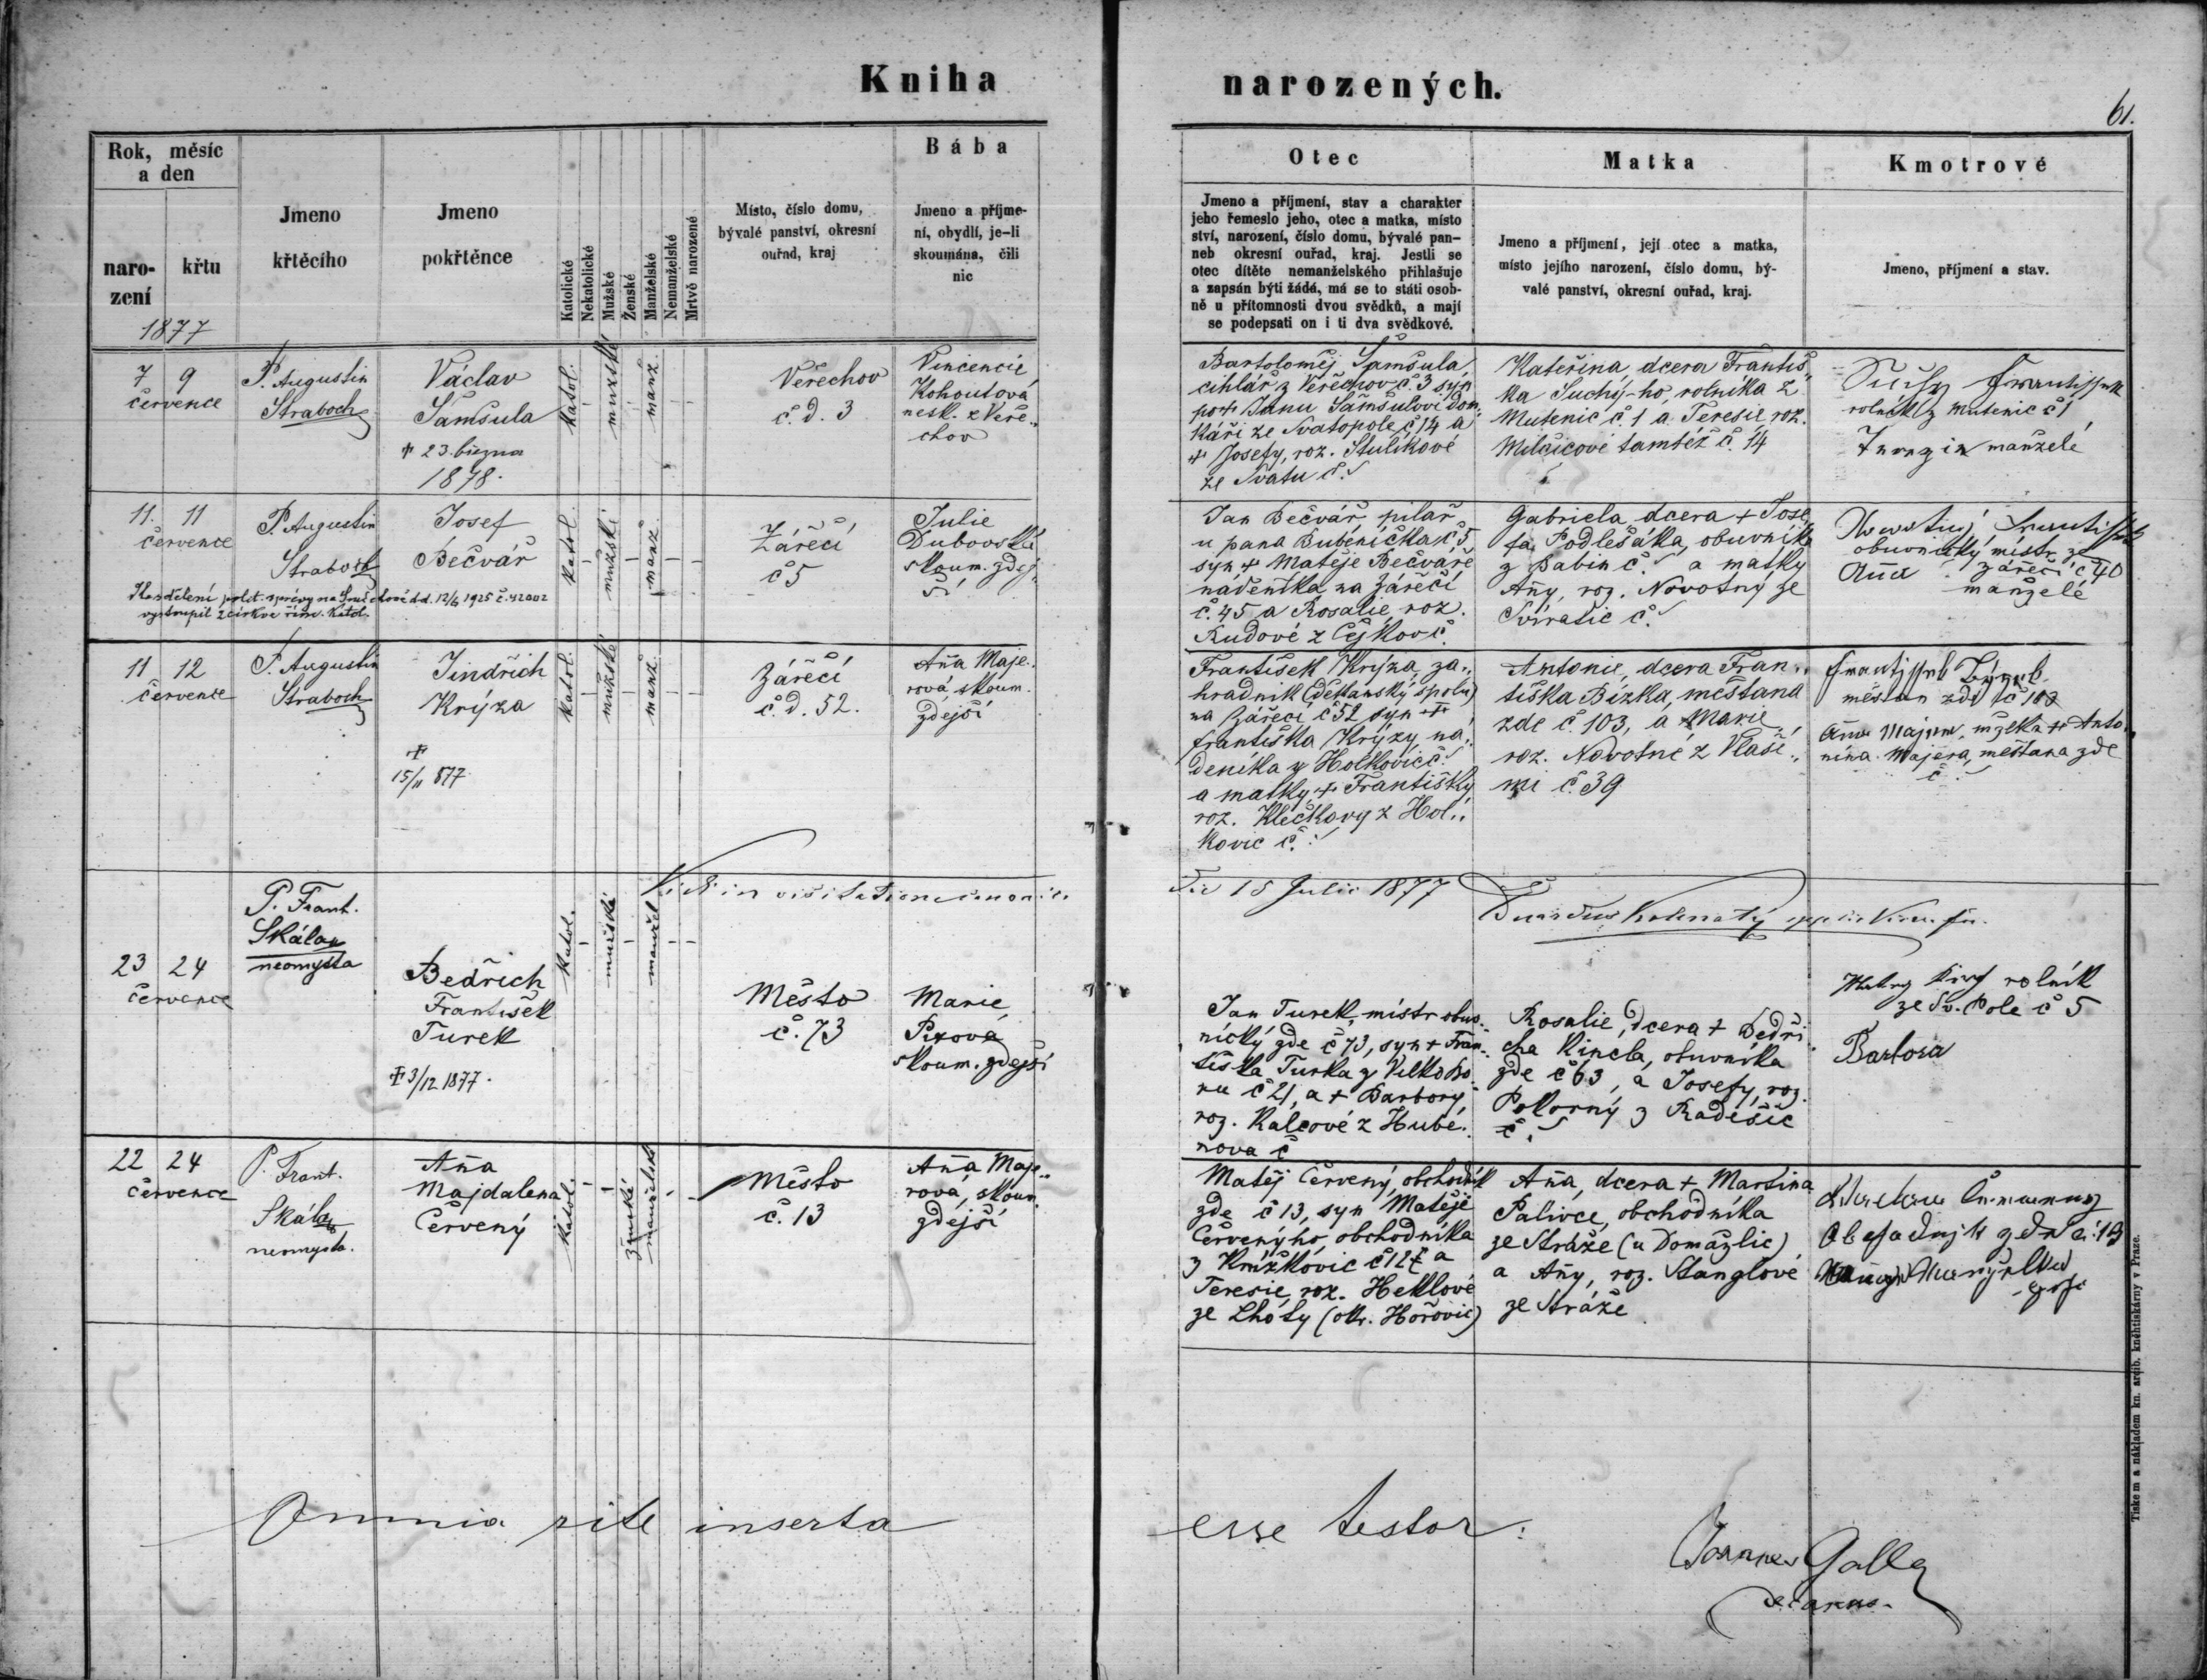 Kniha narozených.
61.
Rok, měsíc
a den
naro-
zení
křtu
1877
Jmeno
křtěcího
Jmeno
pokřtěnce
Katolické
Nekatolické
Mužské
Ženské
Manželské
Nemanželské
Mrtvě narozené
Místo, číslo domu,
bývalé panství, okresní
ouřad, kraj
Bába
Jmeno a příjme-
ní, obydlí, je-li
skoumána, čili
nic
Otec
Jmeno a příjmení, stav a charakter
jeho řemeslo jeho, otec a matka, místo
ství, narození, číslo domu, bývalé pan-
neb okresní ouřad, kraj. Jestli se
otec dítěte nemanželského přihlašuje
a zapsán býti žádá, má se to státi osob-
ně u přítomnosti dvou svědků, a mají
se podepsati on i ti dva svědkové.
Matka
Jmeno a příjmení, její otec a matka,
místo jejího narození, číslo domu, bý-
valé panství, okresní ouřad, kraj.
Kmotrové
Jmeno, příjmení a stav.
7 9
července
P. Augustin
Straboch
Václav
Šamšula
+ 23. března
1878.
katol.
mužské
manž.
Veřechov
č. d. 3
Vincencie
Kohoutová
nesk. z Veře-
chov
Bartoloměj Šamšula,
cihlář z Veřechov č. 3 syn
Janu Šamšulovi dom-
káři ze Svatopole č 14 a
+ Josefy, roz. Stulíkové
ze Svatu č.
Kateřina, dcera Františ-
ka Suchý-ho, rolníka z
Mutenic č. 1 a Teresie, roz.
Milčicové tamtéž č. 14
rolník z Mutenic č 1
manželé
11. 11
července
P. Augustin
Straboch
Josef
Bečvář
vystoupil z církve řím. katol.
katol.
mužské
manž.
Zářečí
č 5
Julie
Dubovská
skoum. zdej-
ší
Jan Bečvář pilař
u pana Bubeníčka č 5
syn + Matěje Bečváře
nádeníka na Zářečí
č. 45 a Rosalie, roz.
Rudové z Čejkov č.
Gabriela dcera + Jose-
fa Podlešáka, obuvníka
z Babin č. a matky
Ańy, roz. Novotný ze
Svíratic č.
obuvnický místr ze
Ańa Zářečí č 40
manželé
11 12
července
P. Augustin
Straboch
Jindřich
Krýza
+
15/11 877
katol.
mužské
manž.
Zářečí
č. d. 52.
Ańa Maje-
rová, skoum.
zdejší
František Krýza, za-
hradník (děkanský spolu)
na Zářečí č 52 syn +
Františka Krýzy ná-
deníka z Holkovic č.
a matky + Františky
roz. Klečkovy z Hol-
kovic č.
Antonie, dcera Fran-
tiška Bízka, měštana
zde č. 103, a Marie
roz. Novotné z Vlaši-
mi č. 39
měštan zde č 103
nína Majera, měštana zde
č.
Die 15 Julii 1877
23 24
července
P. Frant.
Skála
neomysta
Bedřich
František
Turek
+ 3/12 1877.
katol.
mužské
manžel
Město
č. 73
Marie
Pixová
skoum. zdejší
Jan Turek, místr obuv-
nický zde č 73, syn + Fran-
tiška Turka z Velkobo-
ru č 21, a + Barbory
roz. Kalcové z Hubé-
nova č
Rosalie, dcera + Bedři-
cha Kincla, obuvníka
zde č 63, a Josefy, roz.
Pokorný z Radešic
č.
rolník
ze Sv. Pole č 5
Barbora
22 24
července
P. Frant.
Skála
neomysta.
Ańa
Majdalena
Červený
katol.
ženské
manželské
Město
č. 13
Ańa Maje-
rová, skoum.
zdejší
Matěj Červený, obchodník
zde č 13, syn Matěje
Červenýho obchodníka
z Knížkovic č 127 a
Teresie, roz. Heklové
ze Lhóty (okr. Hořovic)
Ańa, dcera + Martina
Palivce, obchodníka
ze Stráže (u Domažlic)
a Ańy, roz. Stanglové
ze Stráže
Omnia rite inserta esse testor:
Joannes Galle
decanus.
Tiskem a nákladem kn. arcib. knihtiskárny v Praze.